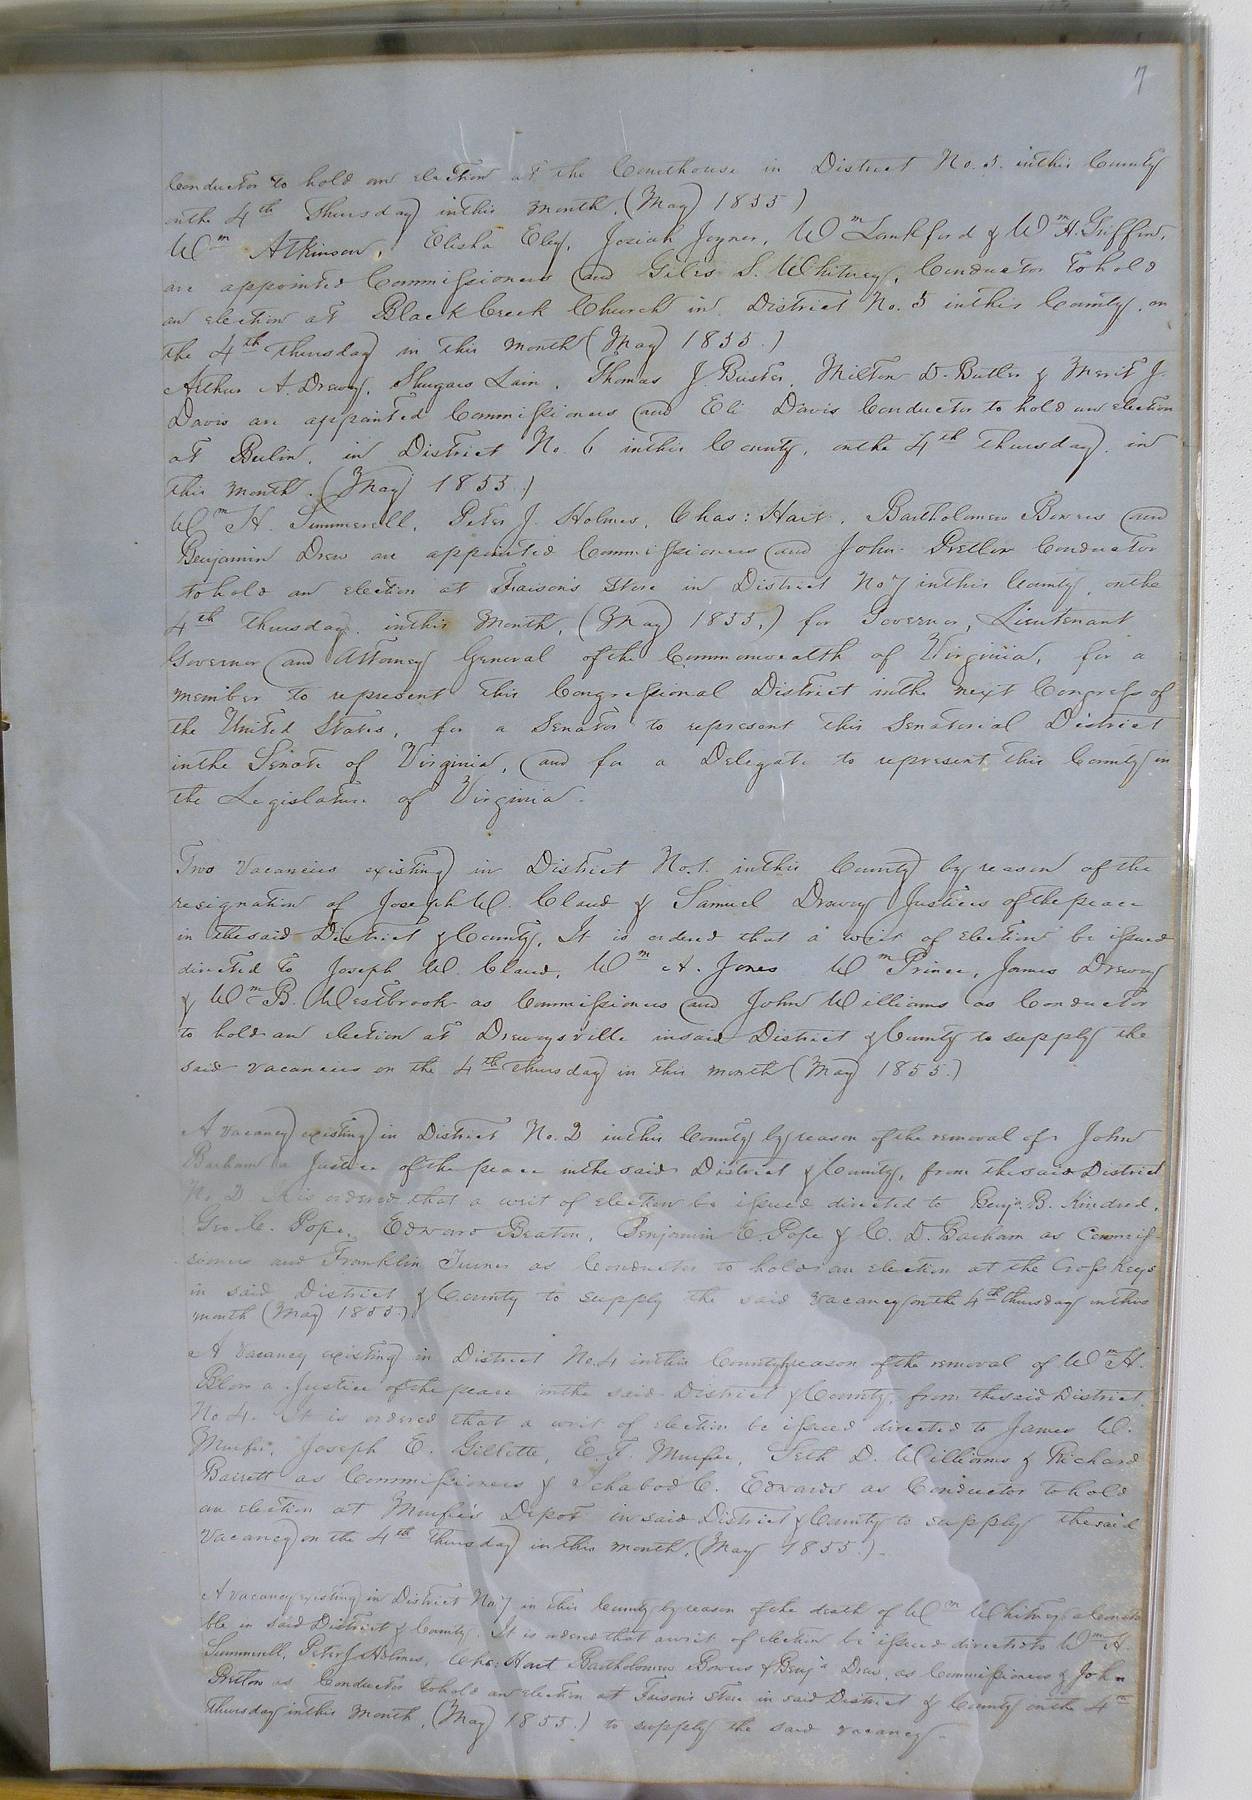 7
Conductor to hold an election at the Courthouse in District No. 5. in this County
on the 4th Thursday in this month. (May 1855)
Wm Atkinson, Elisha Eley, Josiah Joyner, Wm Lankford & Wm H. Griffin,
are appointed Commissioners and Giles S. Whitney, Conductor to hold
an election at Black Creek Church in District No. 5 in this County, on
the 4th Thursday in this month (May 1855.)
Arthur A. Drewry, Shugars Lain, Thomas J. Buster, Milton D. Butler & Merit J.
Davis are appointed Commissioners and Eli Davis Conductor to hold an election
at Berlin, in District No. 6 in this County, on the 4th Thursday, in
this month. (May 1855.)
Wm H. Summerell, Peter J. Holmes, Chas: Hart, Bartholomew Bowers and
Benjamin Drew are appointed Commissioners and John Pretlow Conductor
to hold an election at Faison's Store in District No 7 in this County, on the
4th Thursday, in this Month, (May 1855,) for Governor, Lieutenant
Governor and Attorney General of the Commonwealth of Virginia, for a
member to represent this Congressional District in the next Congress of
the United States, for a Senator to represent this Senatorial District
in the Senate of Virginia, and for a Delegate to represent this County in
the Legislature of Virginia.
Two Vacancies existing in District No. 1. in this County by reason of the
resignation of Joseph W. Claud & Samuel Drewry Justices of the peace
in the said District & County, It is ordered that a writ of election be issued
directed to Joseph W. Claud, Wm A. Jones Wm Prince, James Drewry
& Wm B. Westbrook as Commissioners and John Williams as Conductor
to hold an election at Drewrysville in said District & County to supply the
said vacancies on the 4th Thursday in this month (May 1855.)
A vacancy existing in District No. 2 in this County by reason of the removal of John
Barham a Justice of the peace in the said District & County, from the said District
No. 2. It is ordered that a writ of election be issued directed to Benja. B. Kindred,
Geo. C. Pope, Edward Beaton, Benjamin E. Pope & C. D. Barham as Commis-
sioners and Franklin Turner as Conductor to hold an election at the Cross Keys
in said District & County to supply the said vacancy on the 4th Thursday in this
month (May 1855)
A vacancy existing in District No. 4 in this County reason of the removal of Wm H.
Blow a Justice of the peace in the said District & County, from the said District
No. 4. It is ordered that a writ of election be issued directed to James W.
Murfee, Joseph E. Gillette, E. T. Murfee, Seth D. Williams & Richard
Barrett as Commissioners & Ichabod C. Edwards as Conductor to hold
an election at Murfee's Depot in said District & County to supply the said
Vacancy on the 4th Thursday in this month, (May 1855.)
A vacancy existing in District No. 7 in this County by reason of the death of Wm Whitney a Consta
ble in said District & County. It is ordered that a writ of election be issued directed to Wm H.
Summerell, Peter J Holmes, Chs: Hart Bartholomew Bowers & Benja Drew, as Commissioners & John
Pretlow as Conductor to hold an election at Faison's Store in said District & County on the 4th
Thursday in this Month, (May 1855.) to supply the said vacancy.